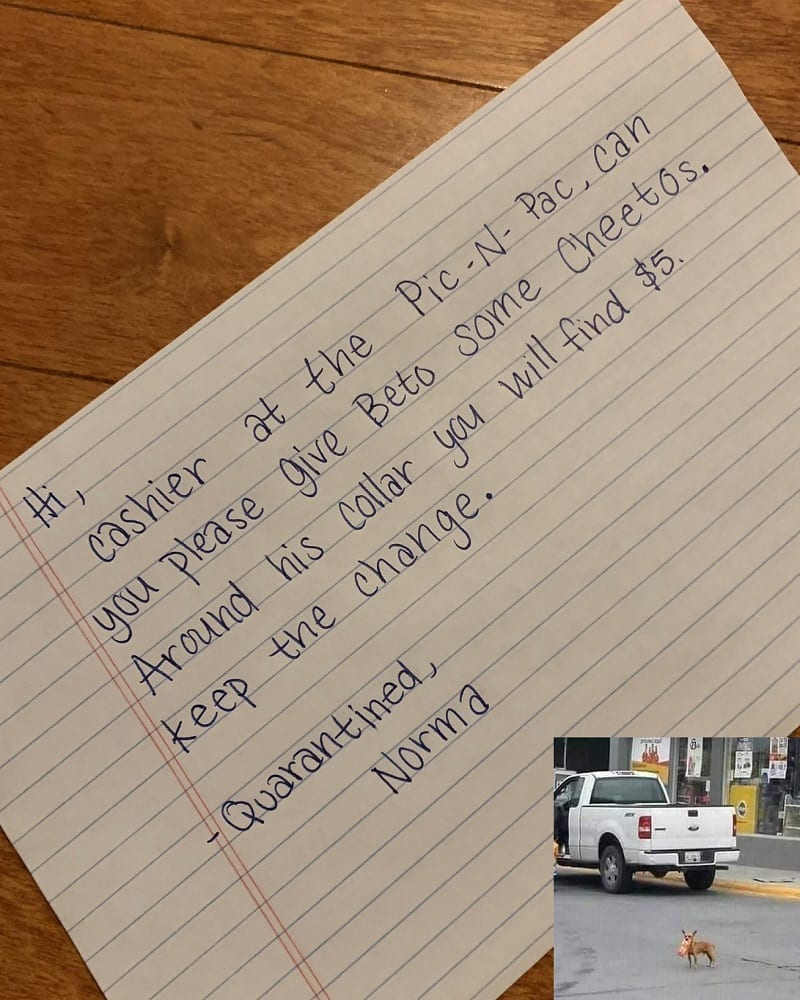 Hi,
cashier at the Pic-N-Pac, can
you please give Beto some Cheetos.
Around his collar you will find $5.
keep the change.
-Quarantined,
Norma